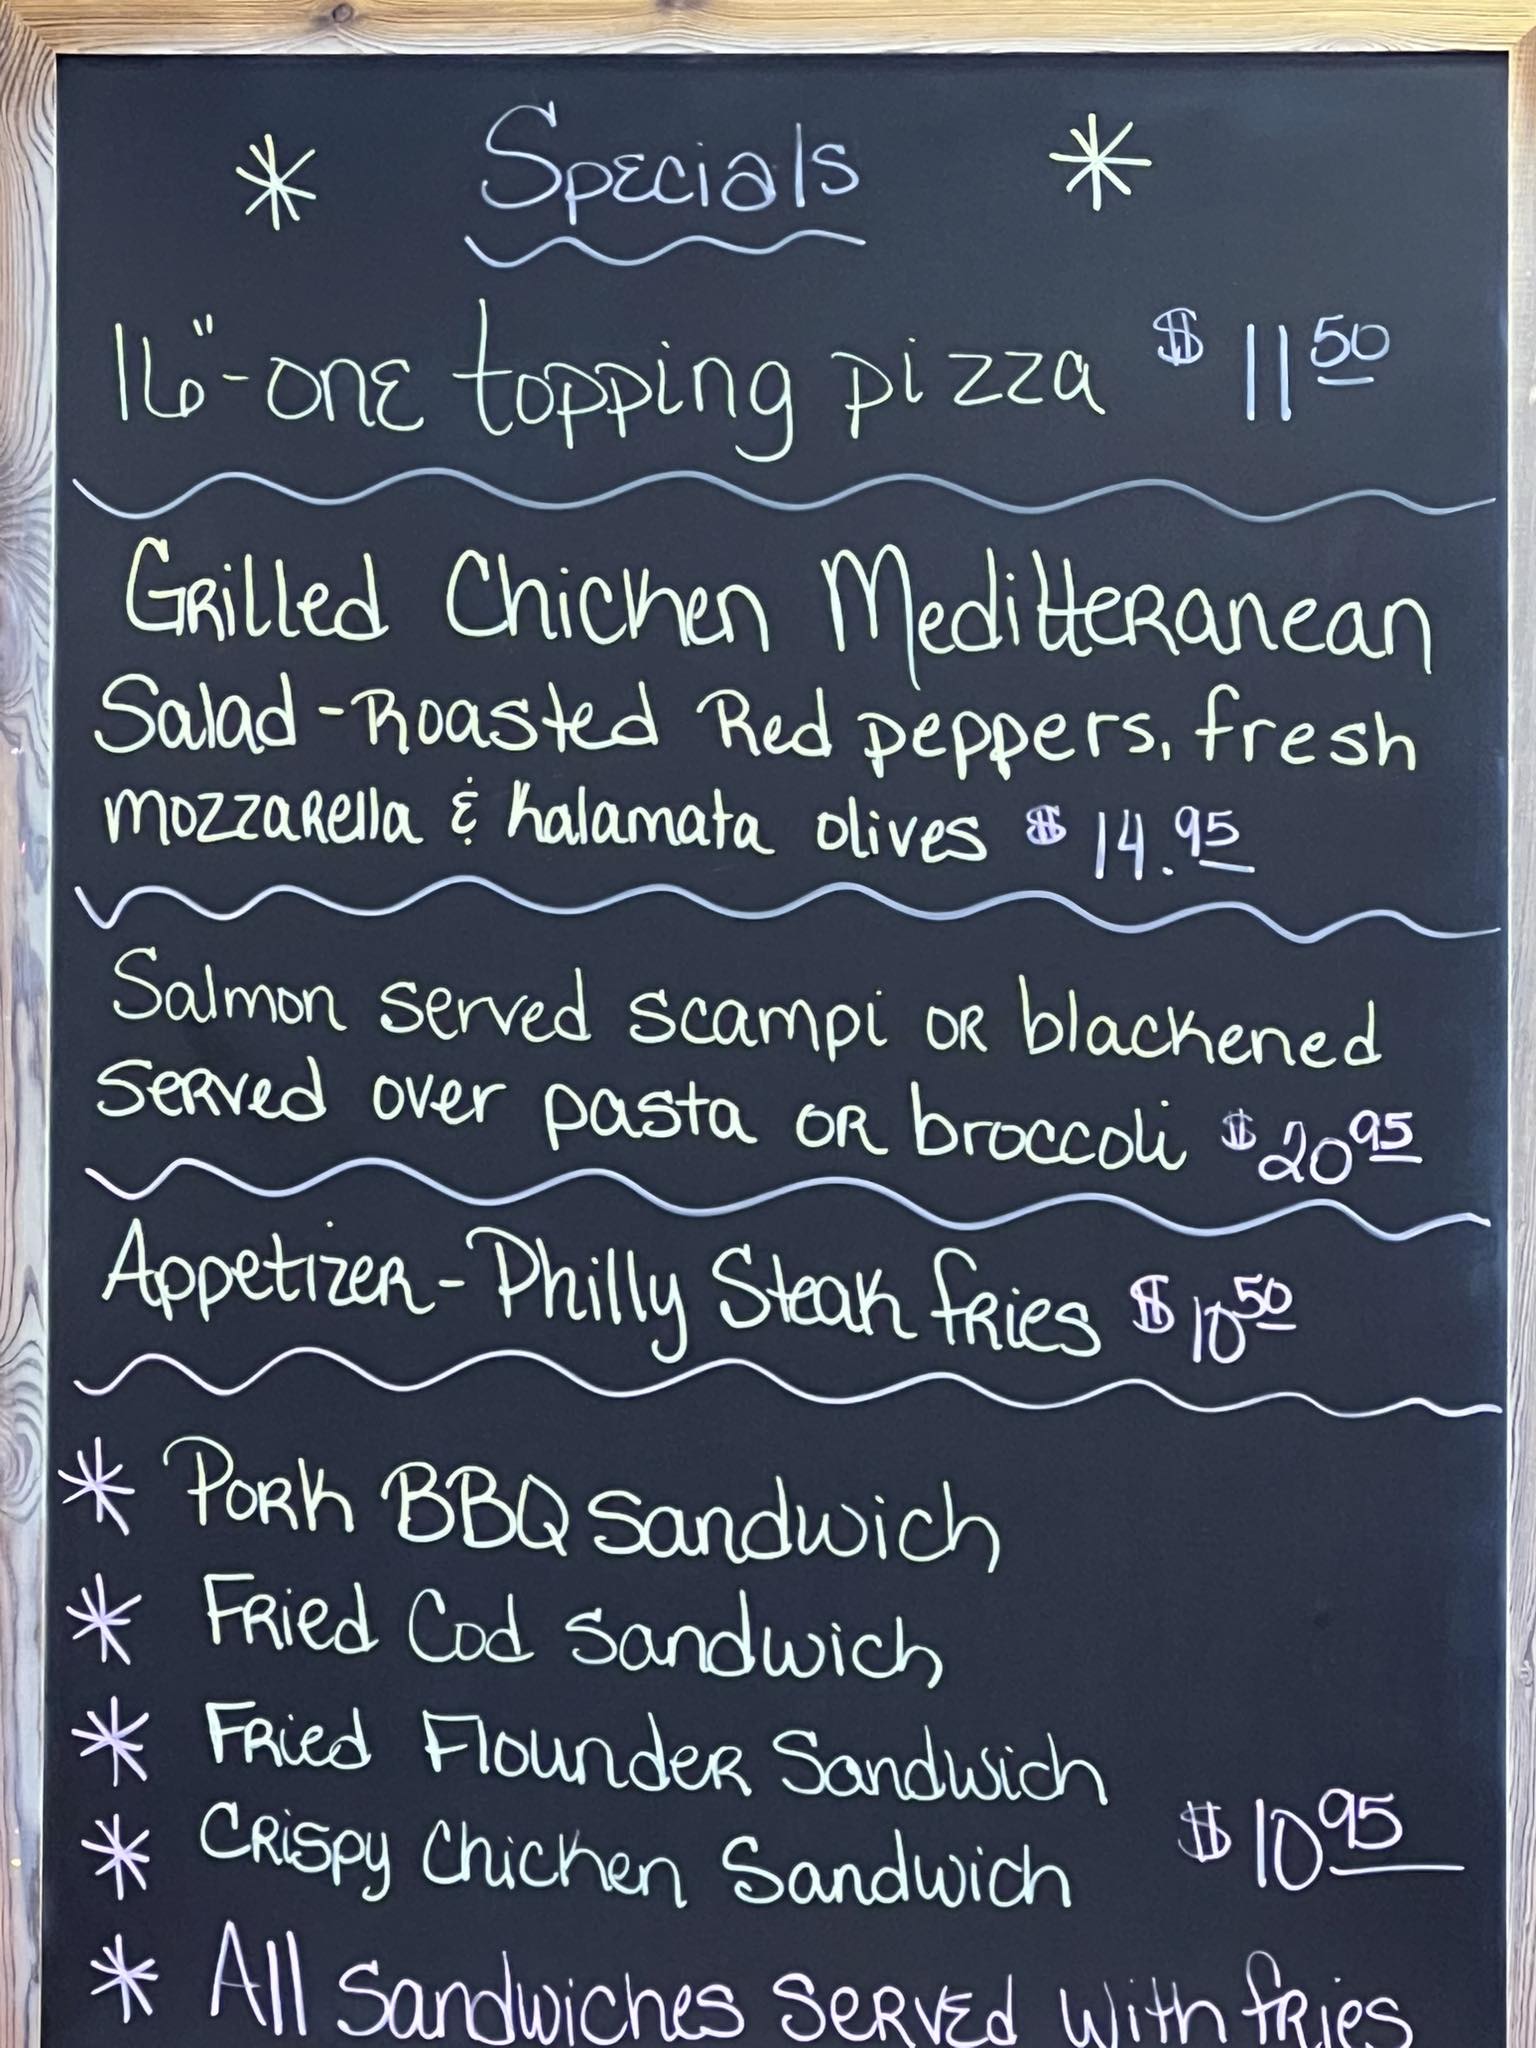 * Specials *
16"-one topping pizza $11 50
Grilled Chicken Meditteranean
Salad-Roasted Red peppers, fresh
mozzarella & kalamata olives $14.95
Salmon served scampi or blackened
served over pasta or broccoli $20 95
Appetizer-Philly Steak fries $10 50
* Pork BBQ Sandwich
* Fried Cod Sandwich
* Fried Flounder Sandwich
* Crispy Chicken Sandwich $10 95
* All Sandwiches served with fries